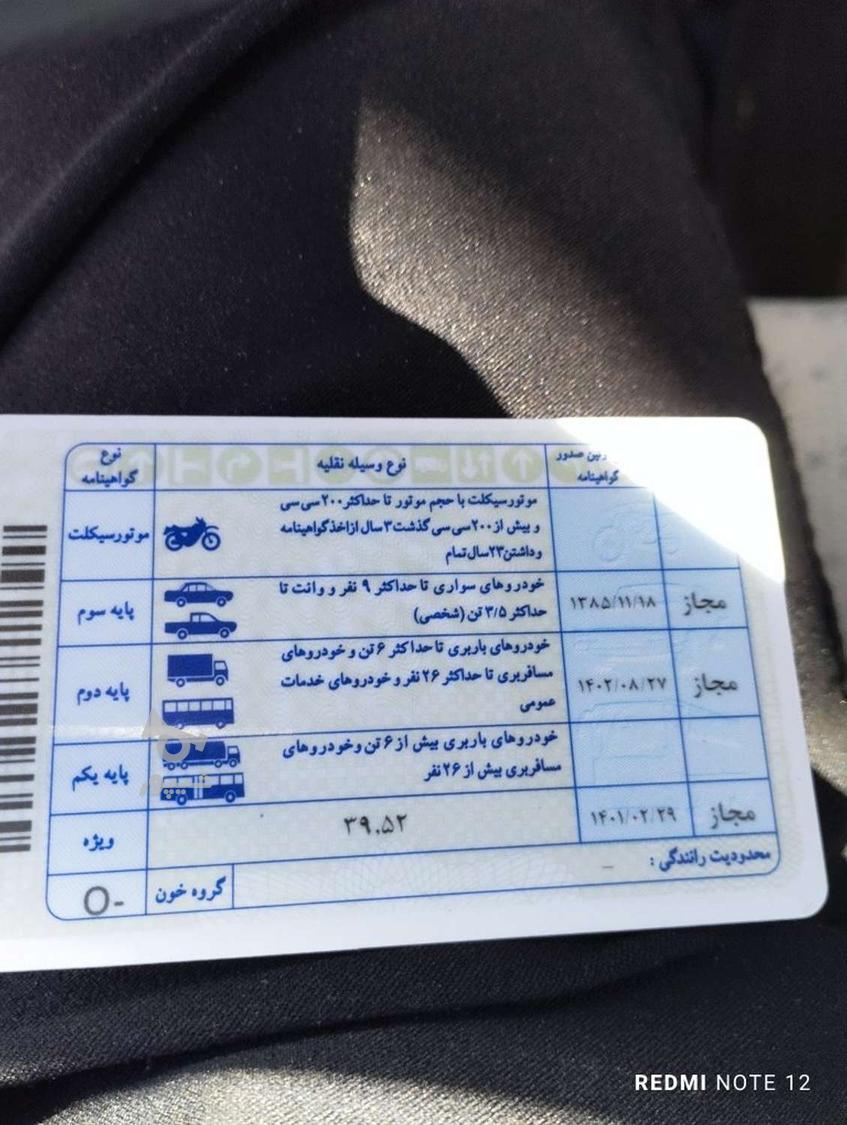 نوع گواهینامه
نوع وسیله نقلیه
صدور گواهینامه
موتورسیکلت
موتورسیکلت با حجم موتور تا حداکثر ۲۰۰ سی سی
و بیش از ۲۰۰ سی سی گذشت ۳ سال ازاخذ گواهینامه
وداشتن ۲۳ سال تمام
پایه سوم
خودروهای سواری تا حداکثر ۹ نفر و وانت تا
حداکثر ۳/۵ تن (شخصی)
۱۳۸۵/۱۱/۱۸
مجاز
پایه دوم
خودروهای باربری تا حداکثر ۶ تن و خودروهای
مسافربری تا حداکثر ۲۶ نفر و خودروهای خدمات
عمومی
۱۴۰۲/۰۸/۲۷
مجاز
پایه یکم
خودروهای باربری بیش از ۶ تن وخودروهای
مسافربری بیش از ۲۶ نفر
ویژه
۳۹،۵۲
۱۴۰۱/۰۲/۲۹
مجاز
محدودیت رانندگی : –
گروه خون
O-
REDMI NOTE 12